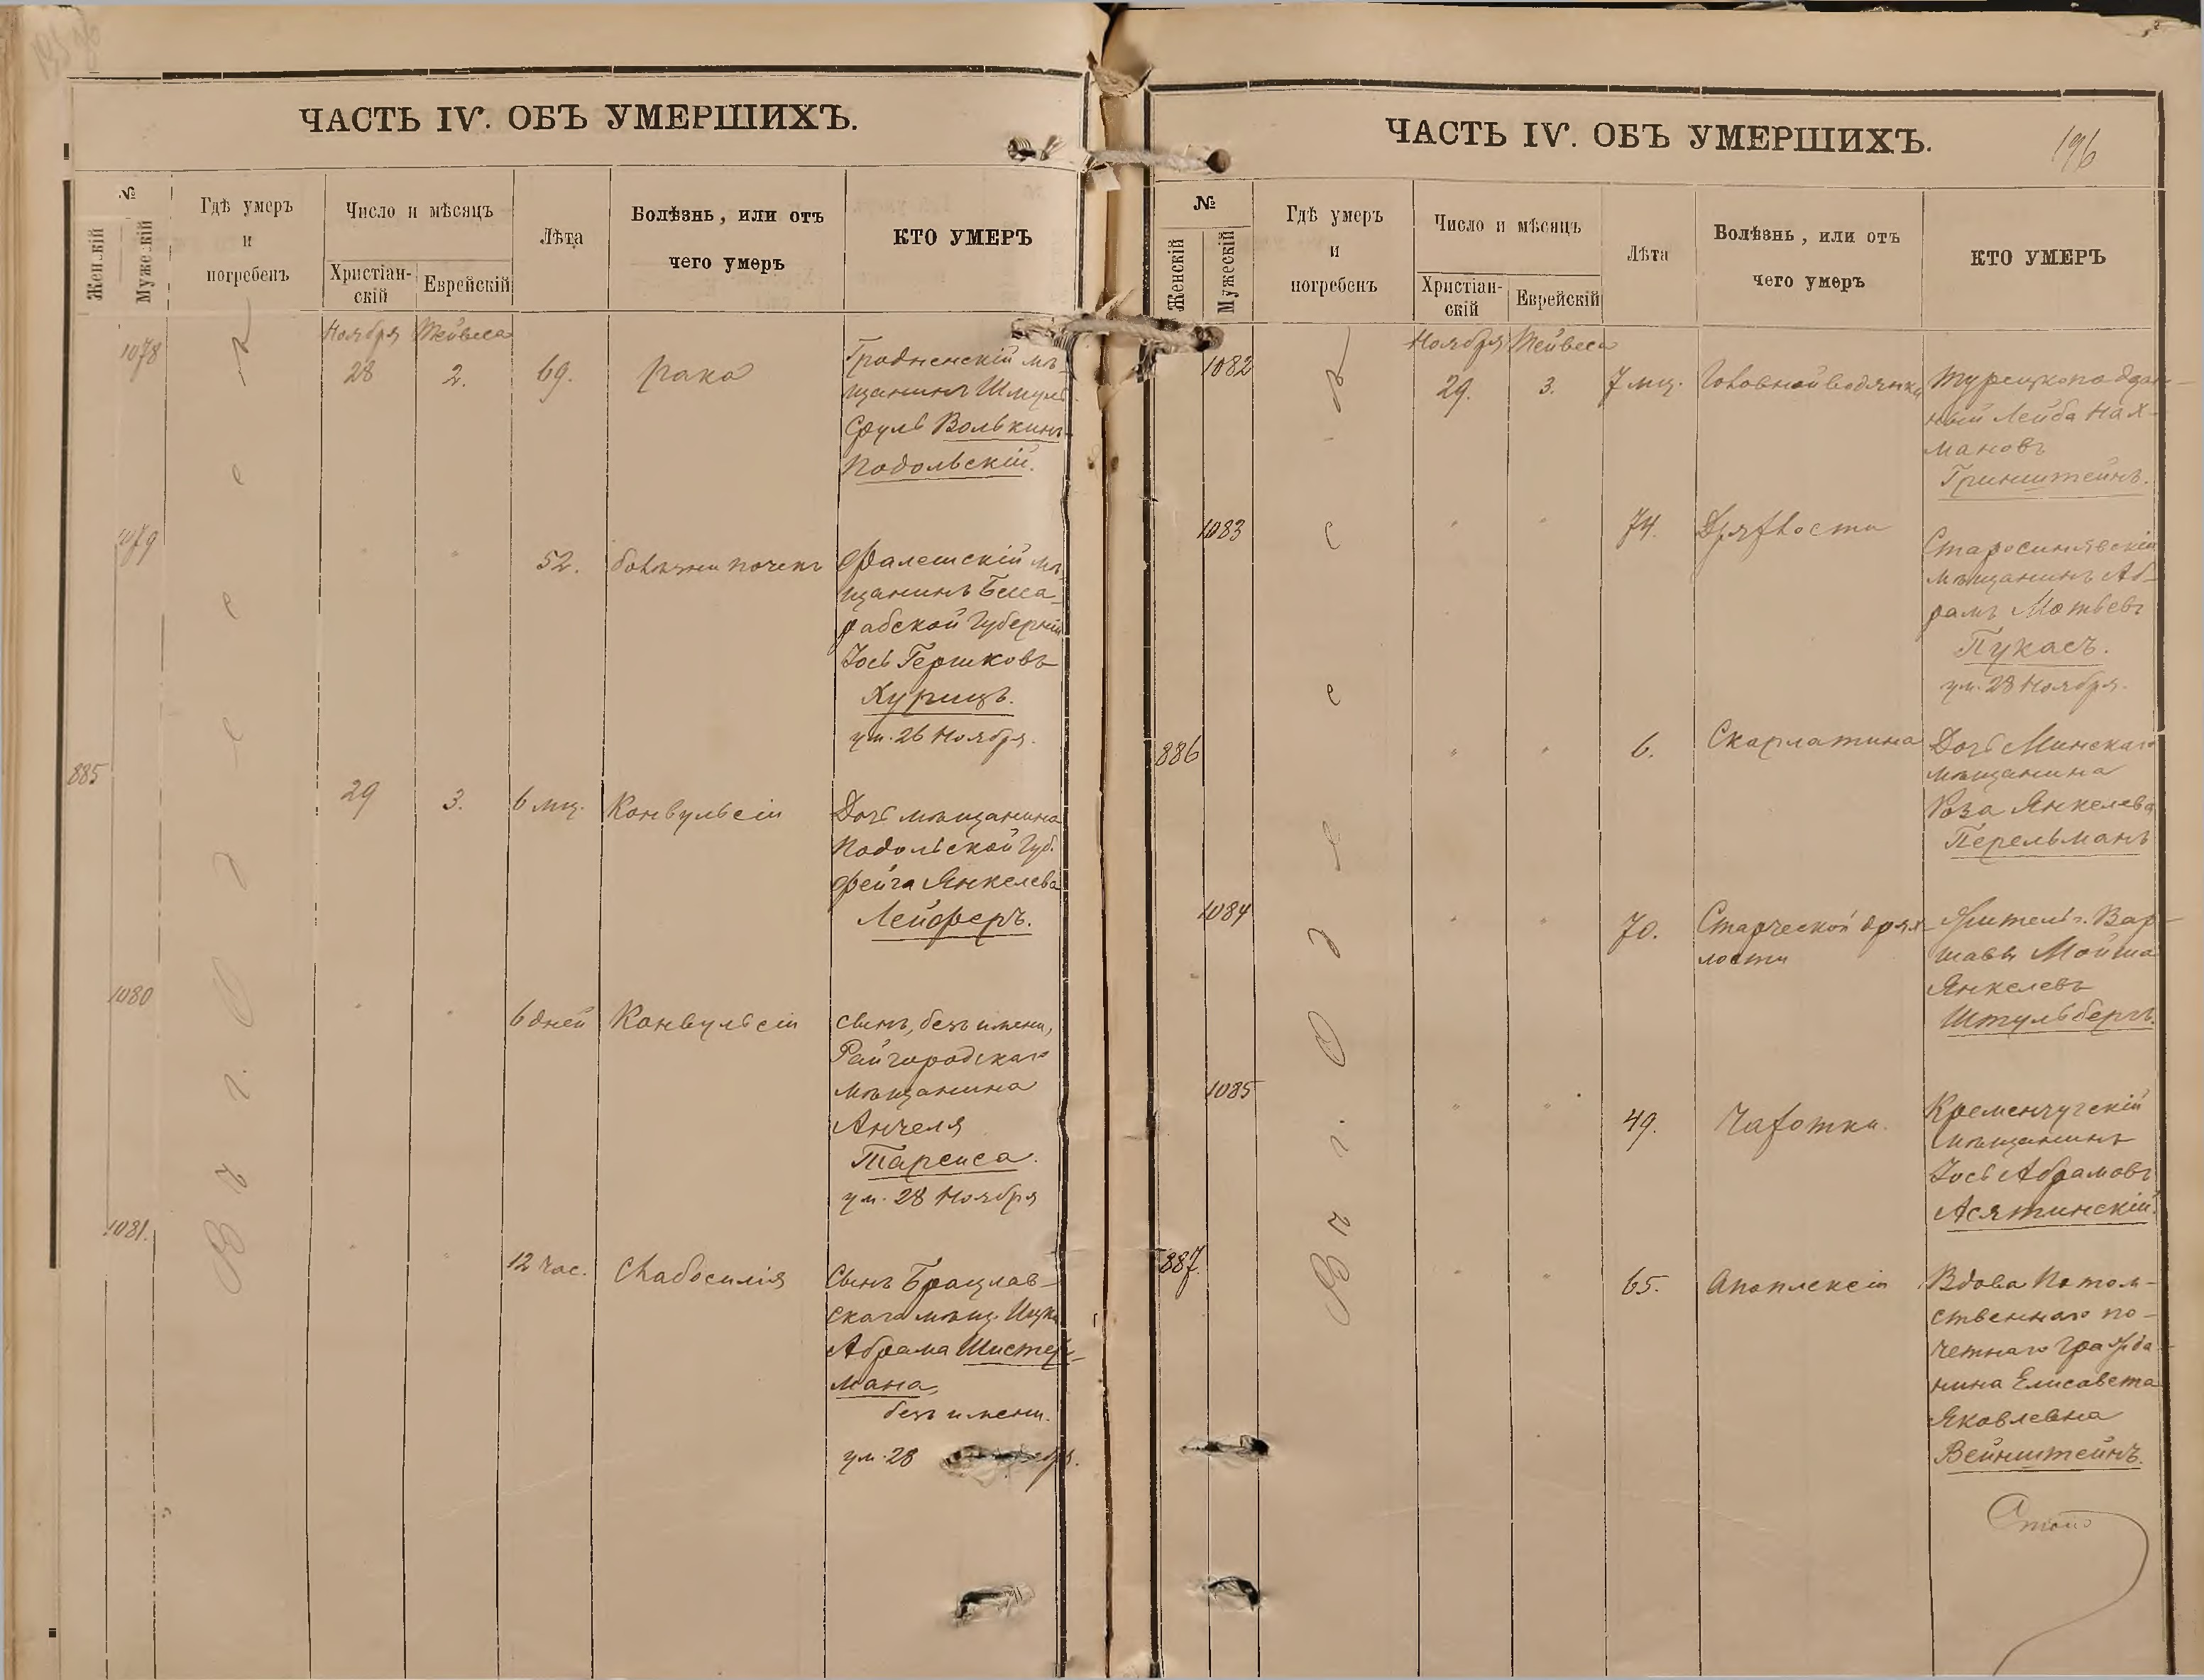 ЧАСТЬ IV. ОБЪ УМЕРШИХЪ.
№
Женскій
Мужескій
Гдѣ умеръ
и
погребенъ
Число и мѣсяцъ
Христіан-
скій
Еврейскій
Лѣта
Болѣзнь, или отъ
чего умеръ
КТО УМЕРЪ
Въ г. Одессѣ
Ноября Тейвеса
1078
28 2. 69. рака
Гродненскій мѣ-
щанинъ Шмуль
Сруль Волькинъ-
Подольскій.
1079
52. болѣзни почекъ
Фалешскій мѣ-
щанинъ Бесса-
рабской Губерніи
Іось Гершковъ
Курицъ.
ум. 26 Ноября.
885
29 3. 6 мц. Конвульсіи
Дочь мѣщанина
Подольской Губ.
Фейга Янкелева
Лейферъ.
1080
6 дней Конвульсіи
сынъ, безъ имени,
Райгородскаго
мѣщанина
Анчеля
Тарсиса.
ум. 28 Ноября
1081.
12 час. Слабосилія
Сынъ Брацлав-
скаго мѣщ. Ицка
Абрама Шистер-
мана,
безъ имени.
ум. 28
ЧАСТЬ IV. ОБЪ УМЕРШИХЪ.
196
№
Женскій
Мужескій
Гдѣ умеръ
и
погребенъ
Число и мѣсяцъ
Христіан-
скій
Еврейскій
Лѣта
Болѣзнь, или отъ
чего умеръ
КТО УМЕРЪ
Въ г. Одессѣ
Ноября Тейвеса
1082
29. 3. 7 мц. Головной водянки
Турецкоподдан-
ный Лейба Нах-
мановъ
Гринштейнъ.
1083
74. Дряхлости
Старосинявскій
мѣщанинъ Аб-
рамъ Мотьевъ
Пукасъ.
ум. 28 Ноября.
886
6. Скарлатина
Дочь Минскаго
мѣщанина
Роза Янкелева
Перельманъ
1084
70. Старческой дрях-
лости
Житель г. Вар-
шавы Мойша
Янкелевъ
Штульбергъ.
1085
49. Чахотки.
Кременчугскій
мѣщанинъ
Іось Абрамовъ
Асятинскій.
887.
65. Апоплексіи
Вдова Потом-
ственнаго по-
четнаго гражда-
нина Елисавета
Яковлевна
Вейнштейнъ.